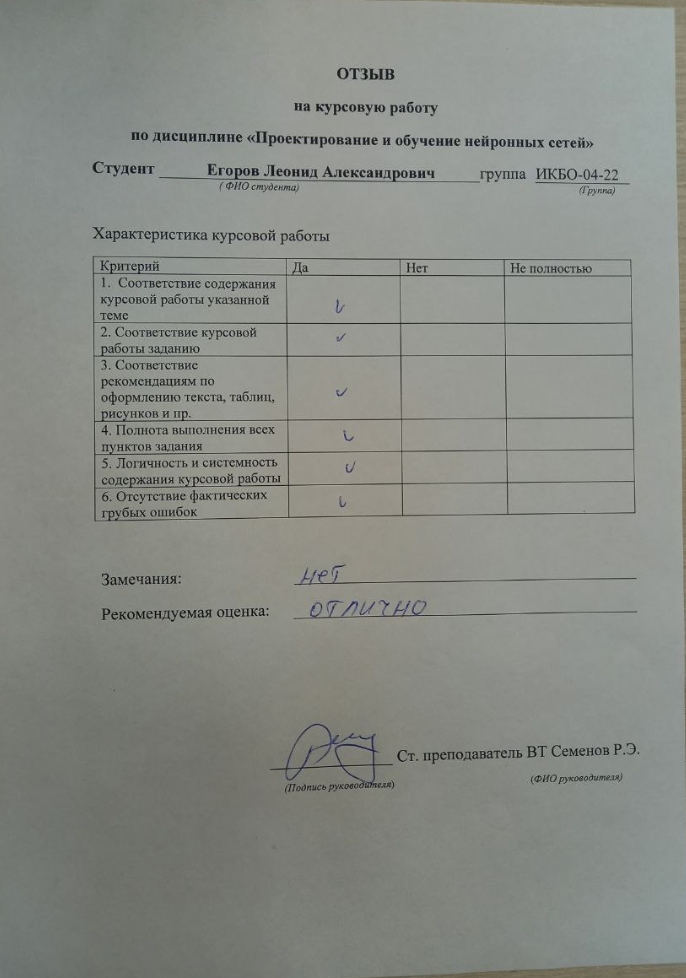 ОТЗЫВ
на курсовую работу
по дисциплине «Проектирование и обучение нейронных сетей»
Студент Егоров Леонид Александрович группа ИКБО-04-22
( ФИО студента) (Группа)
Характеристика курсовой работы
Критерий Да Нет Не полностью
1. Соответствие содержания
курсовой работы указанной
теме
2. Соответствие курсовой
работы заданию
3. Соответствие
рекомендациям по
оформлению текста, таблиц,
рисунков и пр.
4. Полнота выполнения всех
пунктов задания
5. Логичность и системность
содержания курсовой работы
6. Отсутствие фактических
грубых ошибок
Замечания: нет
Рекомендуемая оценка: отлично
Ст. преподаватель ВТ Семенов Р.Э.
(Подпись руководителя) (ФИО руководителя)